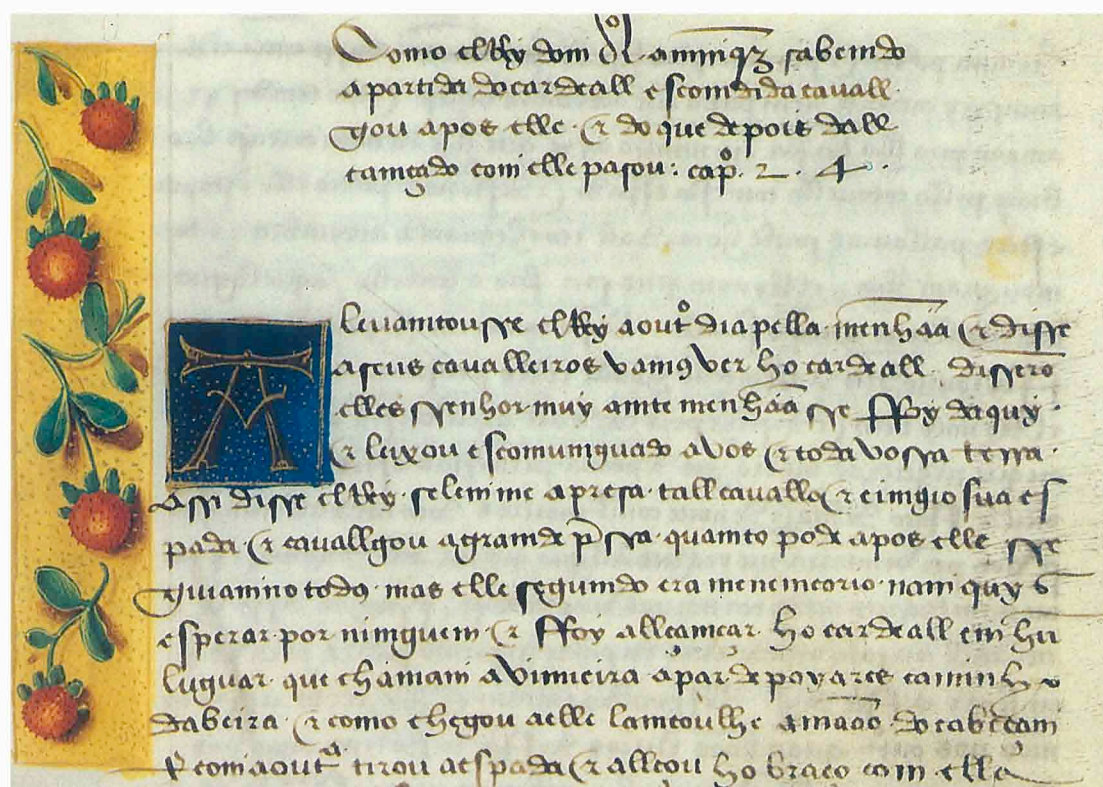 Como elRey dom anrriqz sabemdo
a partida do cardeall escomdida cavall
gou apos elle · & do que depois dall
camçado com elle pasou : capº. 2 · 4 ·
A levamtousse elRey aoutº dia pella menhãa & disse
a seus cavalleiros vamos ver ho cardeall · disserõ
elles ssenhor muy amte menhãa sse ffoy daquy ·
& leixou escomunguado a vos & toda vossa terra ·
assi disse elRey · selemme apresa · tall cavallo & cimgio sua es
pada · & cavallgou a gramde pssa · quamto pode apos elle sse
guiamno todos · mas elle segumdo era menemcorio · nam quys
esperar por nimguem & ffoy allcamcar ho cardeall em hu
luguar · que chamam a vimieira apar de poyares caminho
da beira · & como chegou a elle lamcoulhe a maão do cabecam
& com a outª tirou a espada & allcou ho braco com ella